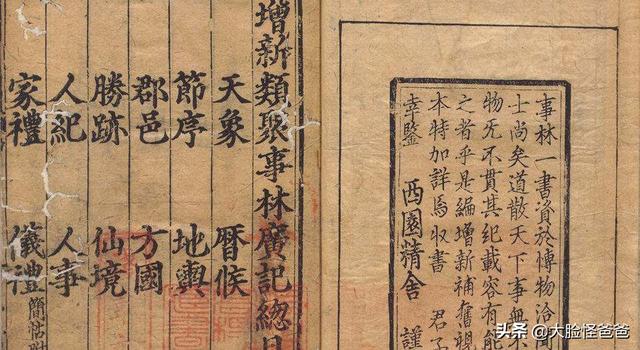 事林一書資於博物洽
士尚矣道散天下事無
物旡不貫其紀載容有節
之者乎是編增新補舊
本特加詳焉収書 君子
幸鑒
西園精舍 謹
增新類聚事林廣記總目
天象 曆候
節序 地輿
郡邑 方國
勝跡 仙境
人紀 人事
家禮 儀禮 簡帖附
头条 @大脸怪爸爸